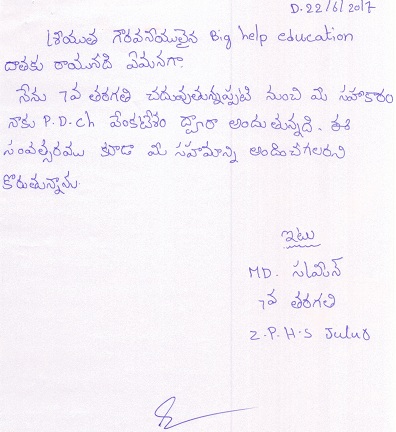 D. 22/6/2017
శ్రీయుత గౌరవనీయులైన Big help education
దాతకు రాయునది ఏమనగా.
నేను 7వ తరగతి చదువుతున్నప్పటి నుంచి మీ సహాకారం
నాకు P.D.Ch వేంకటేశం ద్వారా అందుతున్నది. ఈ
సంవత్సరము కూడా మీ సహామాన్ని అందించగలరని
కోరుతున్నాను.
ఇటు
MD.
7వ తరగతి
Z.P.H.S Julur